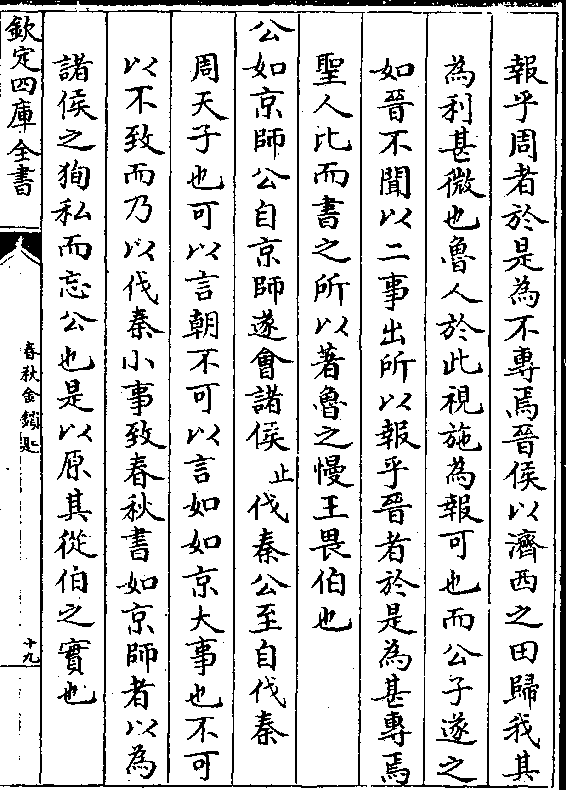 報乎周者於是為不專焉晉侯以濟西之田歸我其
為利甚微也魯人於此視施為報可也而公子遂之
如晉不聞以二事出所以報乎晉者於是為甚專焉
聖人比而書之所以著魯之慢王畏伯也
公如京師公自京師遂會諸侯止伐秦公至自伐秦
周天子也可以言朝不可以言如如京大事也不可
以不致而乃以伐秦小事致春秋書如京師者以為
諸侯之狥私而忘公也是以原其從伯之實也
欽定四庫全書
春秋金鎖匙
十九